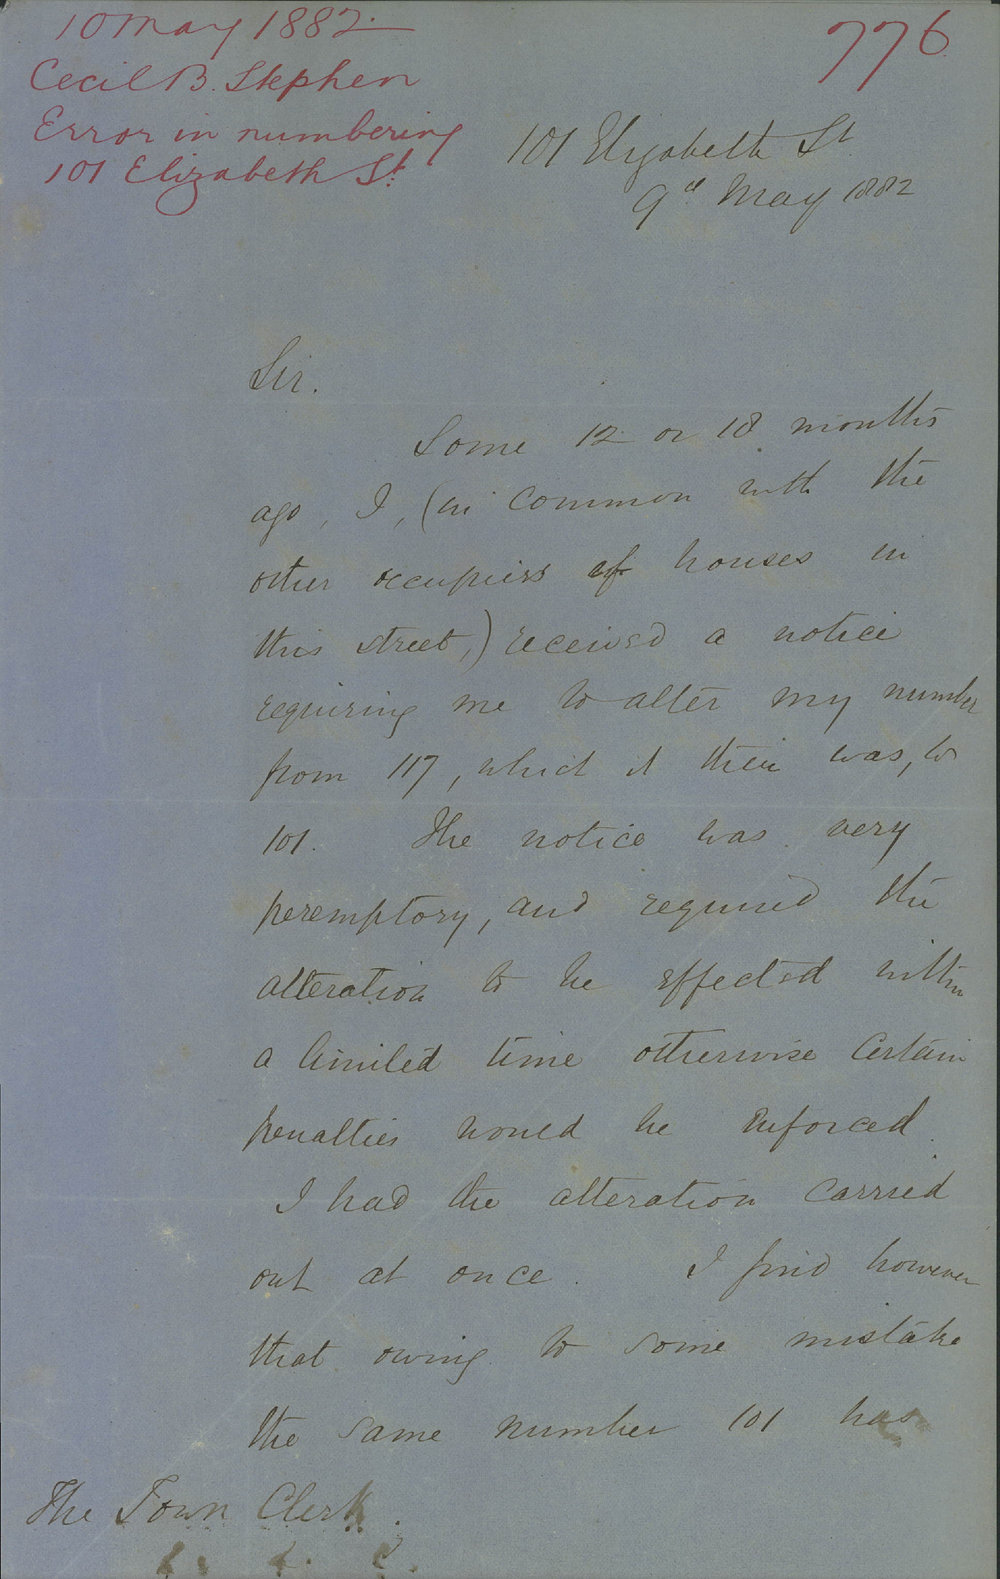 10 May 1882
Cecil B. Stephen
Error in numbering
101 Elizabeth St.
776
101 Elizabeth St
9th May 1882
Sir.
Some 12 or 18 months
ago, I, (in common with the
other occupiers of houses in
this street,) received a notice
requiring me to alter my number
from 117, which it then was, to
101. The notice was very
peremptory, and required the
alteration to be effected within
a limited time otherwise certain
penalties would be enforced.
I had the alteration carried
out at once. I find however
that owing to some mistake
the same number 101 has
The Town Clerk.
&. &. &.